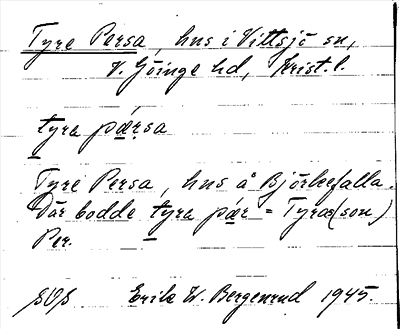 Tyre Persa, hus i Vittsjö sn,
V. Göinge hd, Krist. l.
tyra pärsa
Tyre Persa, hus å Björkefalla.
Där bodde tyra pär = Tyra(son)
Per.
Erik W. Bergenrud 1945.